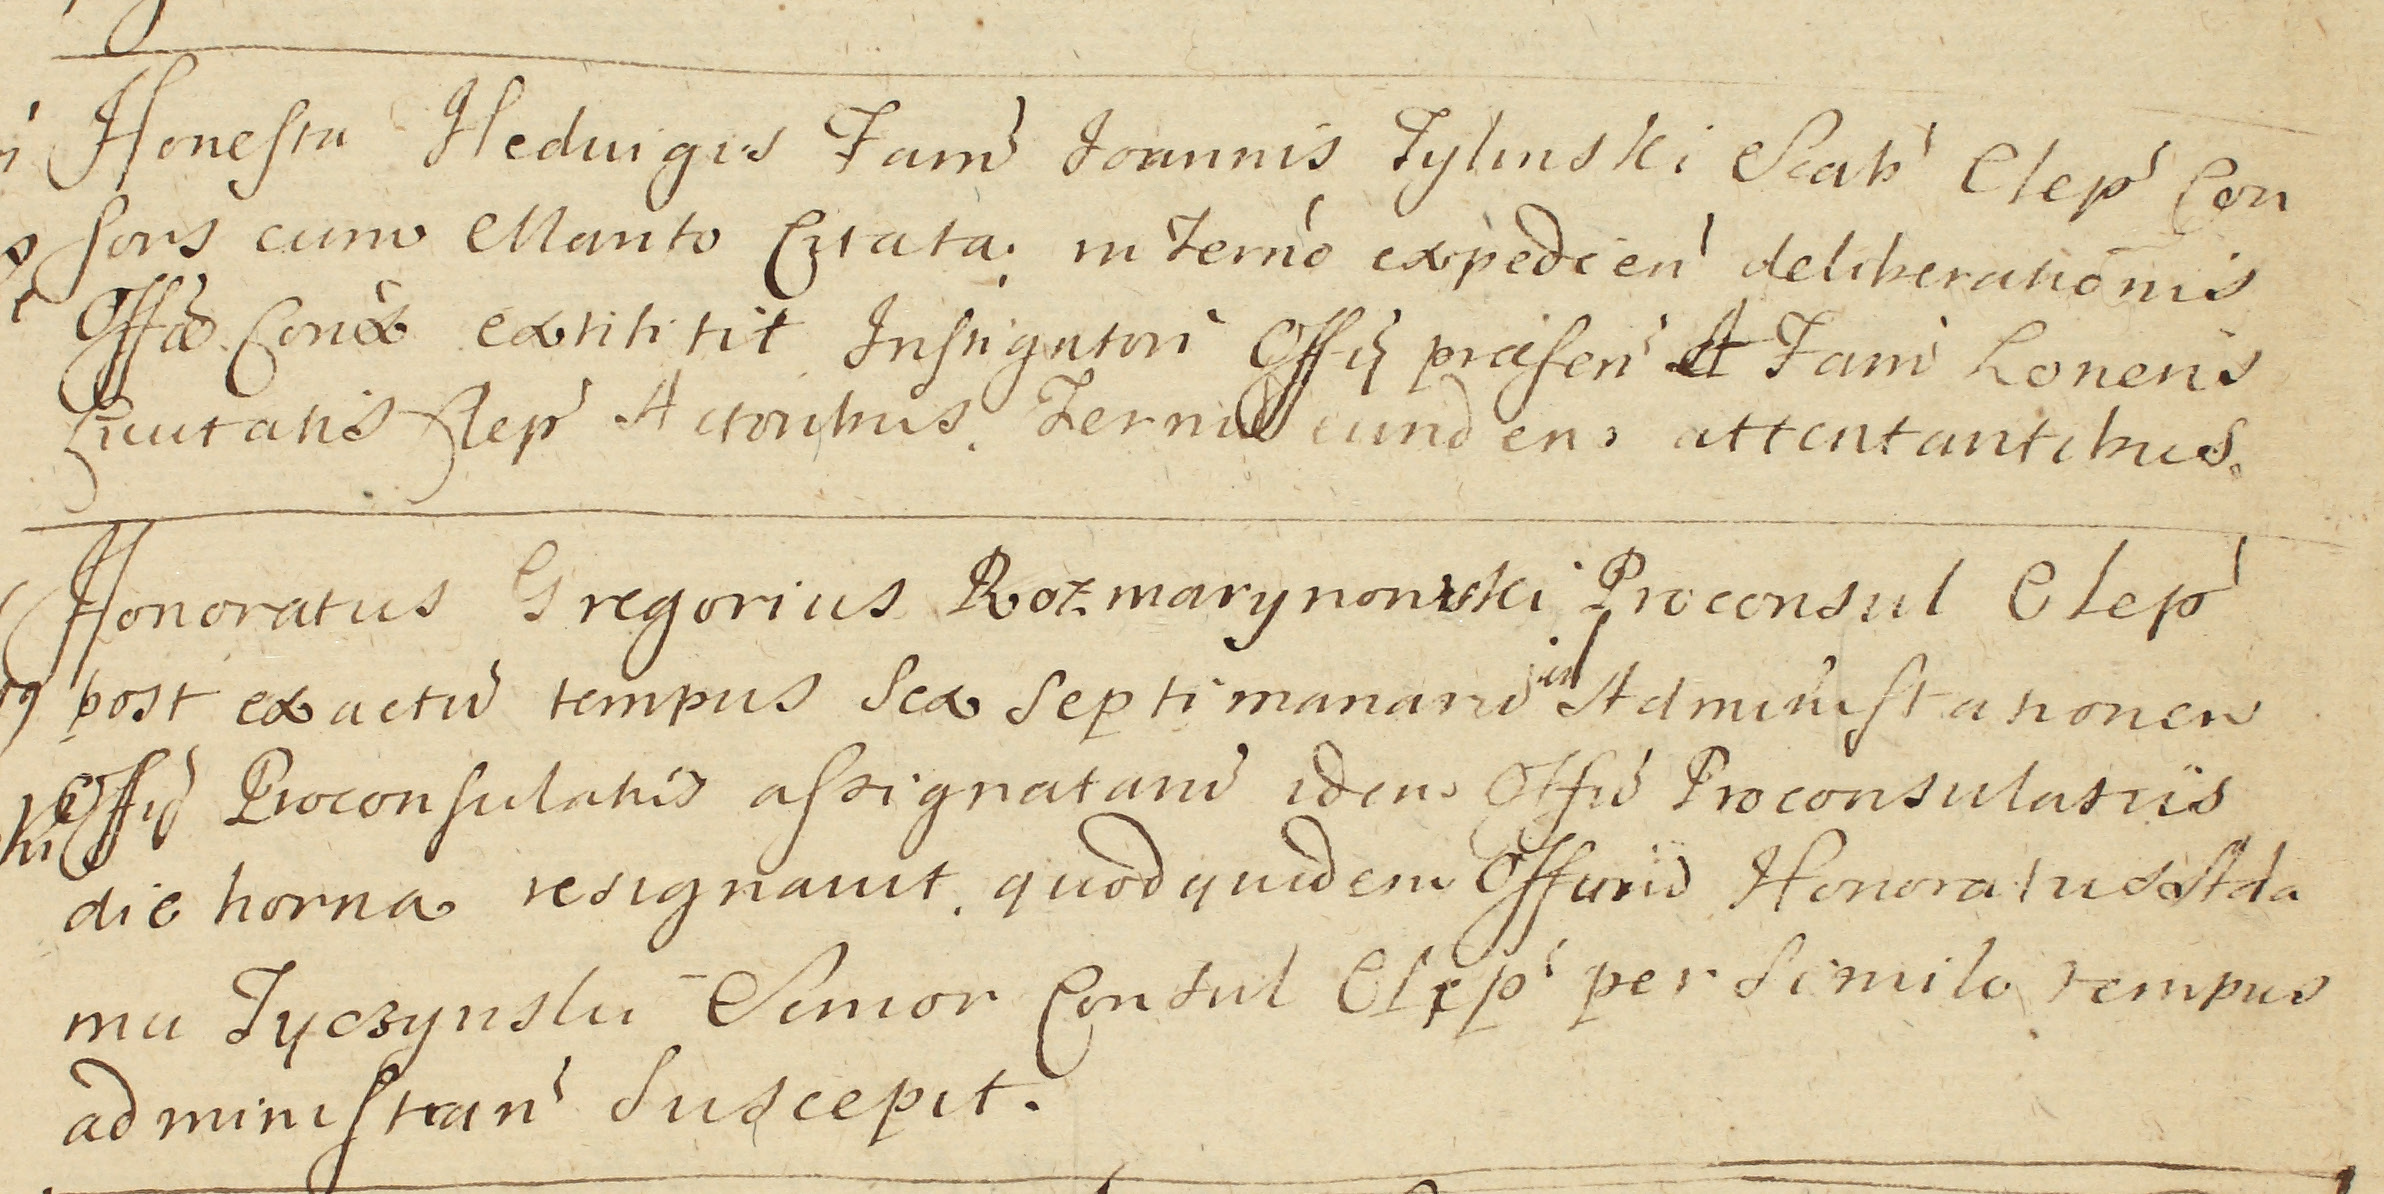 Honesta Heduigis Fam̃ Ioannis Tylinski Scab' Clep' Con
sors cum Marito Citata, in Termo expedien' deliberationis
Offi Cons extititit Instigatori Offij præsen' Et Fam' Loneris
Ciuitatis Clep' Actoribus. Termin eundem attentantibus.
Honoratus Gregorius Rozmarynowski Proconsul Clep'
post exactũ tempus sex septimanarũ in Administationem
Offij Proconsulatus assignatarũ idem Offiũ Proconsulatus
die horna resignauit. quod quidem Officiũ Honoratus Ada
mu Tyczynski Senior Consul Clep' per simile tempus
administran' suscepit.